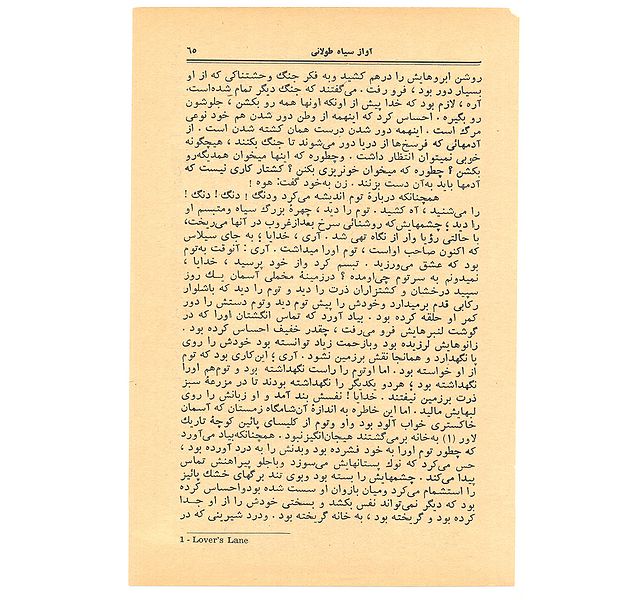 ۶۵ آواز سیاه طولانی
روشن ابروهایش را درهم کشید وبه فکر جنگ وحشتناکی که از او
بسیار دور بود ، فرو رفت . می‌گفتند که جنگ دیگر تمام شده‌است.
آره ، لازم بود که خدا پیش از اونکه اونها همه رو بکشن ، جلوشون
رو بگیره . احساس کرد که اینهمه از وطن دور شدن هم خود نوعی
مرگ است . اینهمه دور شدن درست همان کشته شدن است . از
آدمهائی که فرسخ‌ها از دریا دور می‌شوند تا جنگ بکنند ، هیچگونه
خوبی نمیتوان انتظار داشت . وچطوره که اینها میخوان همدیگه‌رو
بکشن ؟ چطوره که میخوان خونریزی بکنن ؟ کشتار کاری نیست که
آدمها باید به‌آن دست بزنند . زن به‌خود گفت: هوه !
همچنانکه دربارهٔ توم اندیشه می‌کرد ودنگ ! دنگ ! دنگ !
را می‌شنید ، آه کشید . توم را دید ، چهرهٔ بزرگ سیاه ومتبسم او
را دید ، چشمهایش‌که روشنائی سرخ بعدازغروب در آنها می‌ریخت،
با حالتی رؤیا وار از نگاه تهی شد . آری ، خدایا ؛ به جای سیلاس
که اکنون صاحب اواست ، توم اورا میداشت . آری : آنوقت به‌توم
بود که عشق می‌ورزید . تبسم کرد واز خود پرسید ، خدایا ،
نمیدونم به سرتوم چی‌اومده ؟ درزمینهٔ مخملی آسمان یک روز
سپید درخشان و کشتزاران ذرت را دید و توم را دید که باشلوار
رکابی قدم برمیدارد وخودش را پیش توم دید وتوم دستش را دور
کمر او حلقه کرده بود . بیاد آورد که تماس انگشتان اورا که در
گوشت لنبرهایش فرو می‌رفت ، چقدر خفیف احساس کرده بود .
زانوهایش لرزیده بود وبازحمت زیاد توانسته بود خودش را روی
پا نگهدارد و همانجا نقش برزمین نشود . آری ؛ این‌کاری بود که توم
از او خواسته بود . اما اوتوم را راست نگهداشته بود و توم‌هم اورا
نگهداشته بود ؛ هردو یکدیگر را نگهداشته بودند تا در مزرعهٔ سبز
ذرت برزمین نیفتند . خدایا ! نفسش بند آمد و او زبانش را روی
لبهایش مالید . اما این خاطره به اندازهٔ آن‌شامگاه زمستان که آسمان
خاکستری خواب آلود بود واو وتوم از کلیسای پائین کوچهٔ تاریك
لاور (۱) به‌خانه برمی‌گشتند هیجان‌انگیزنبود . همچنانکه‌بیاد می‌آورد
که چطور توم اورا به خود فشرده بود وبدنش را به درد آورده بود ،
حس می‌کرد که نوك پستانهایش می‌سوزد وباجلو پیراهنش تماس
پیدا می‌کند . چشمهایش را بسته بود وبوی تند برگهای خشك پائیز
را استشمام می‌کرد ومیان بازوان او سست شده بودواحساس کرده
بود که دیگر نمی‌تواند نفس بکشد و بسختی خودش را از او جدا
کرده بود و گریخته بود ، به خانه گریخته بود . ودرد شیرینی که در
1 - Lover's Lane